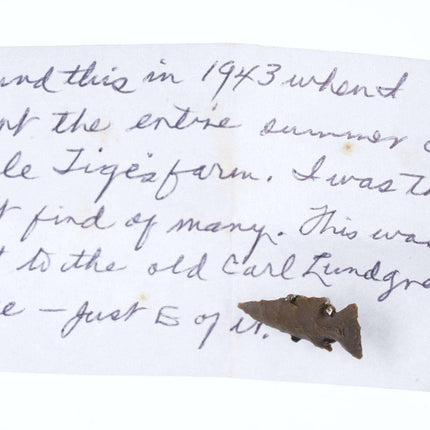 und this in 1943 when I
nt the entire summer
le Tige's farm. I was th
t find of many. This was
t to the old Carl Lundgre
e — just E of it.